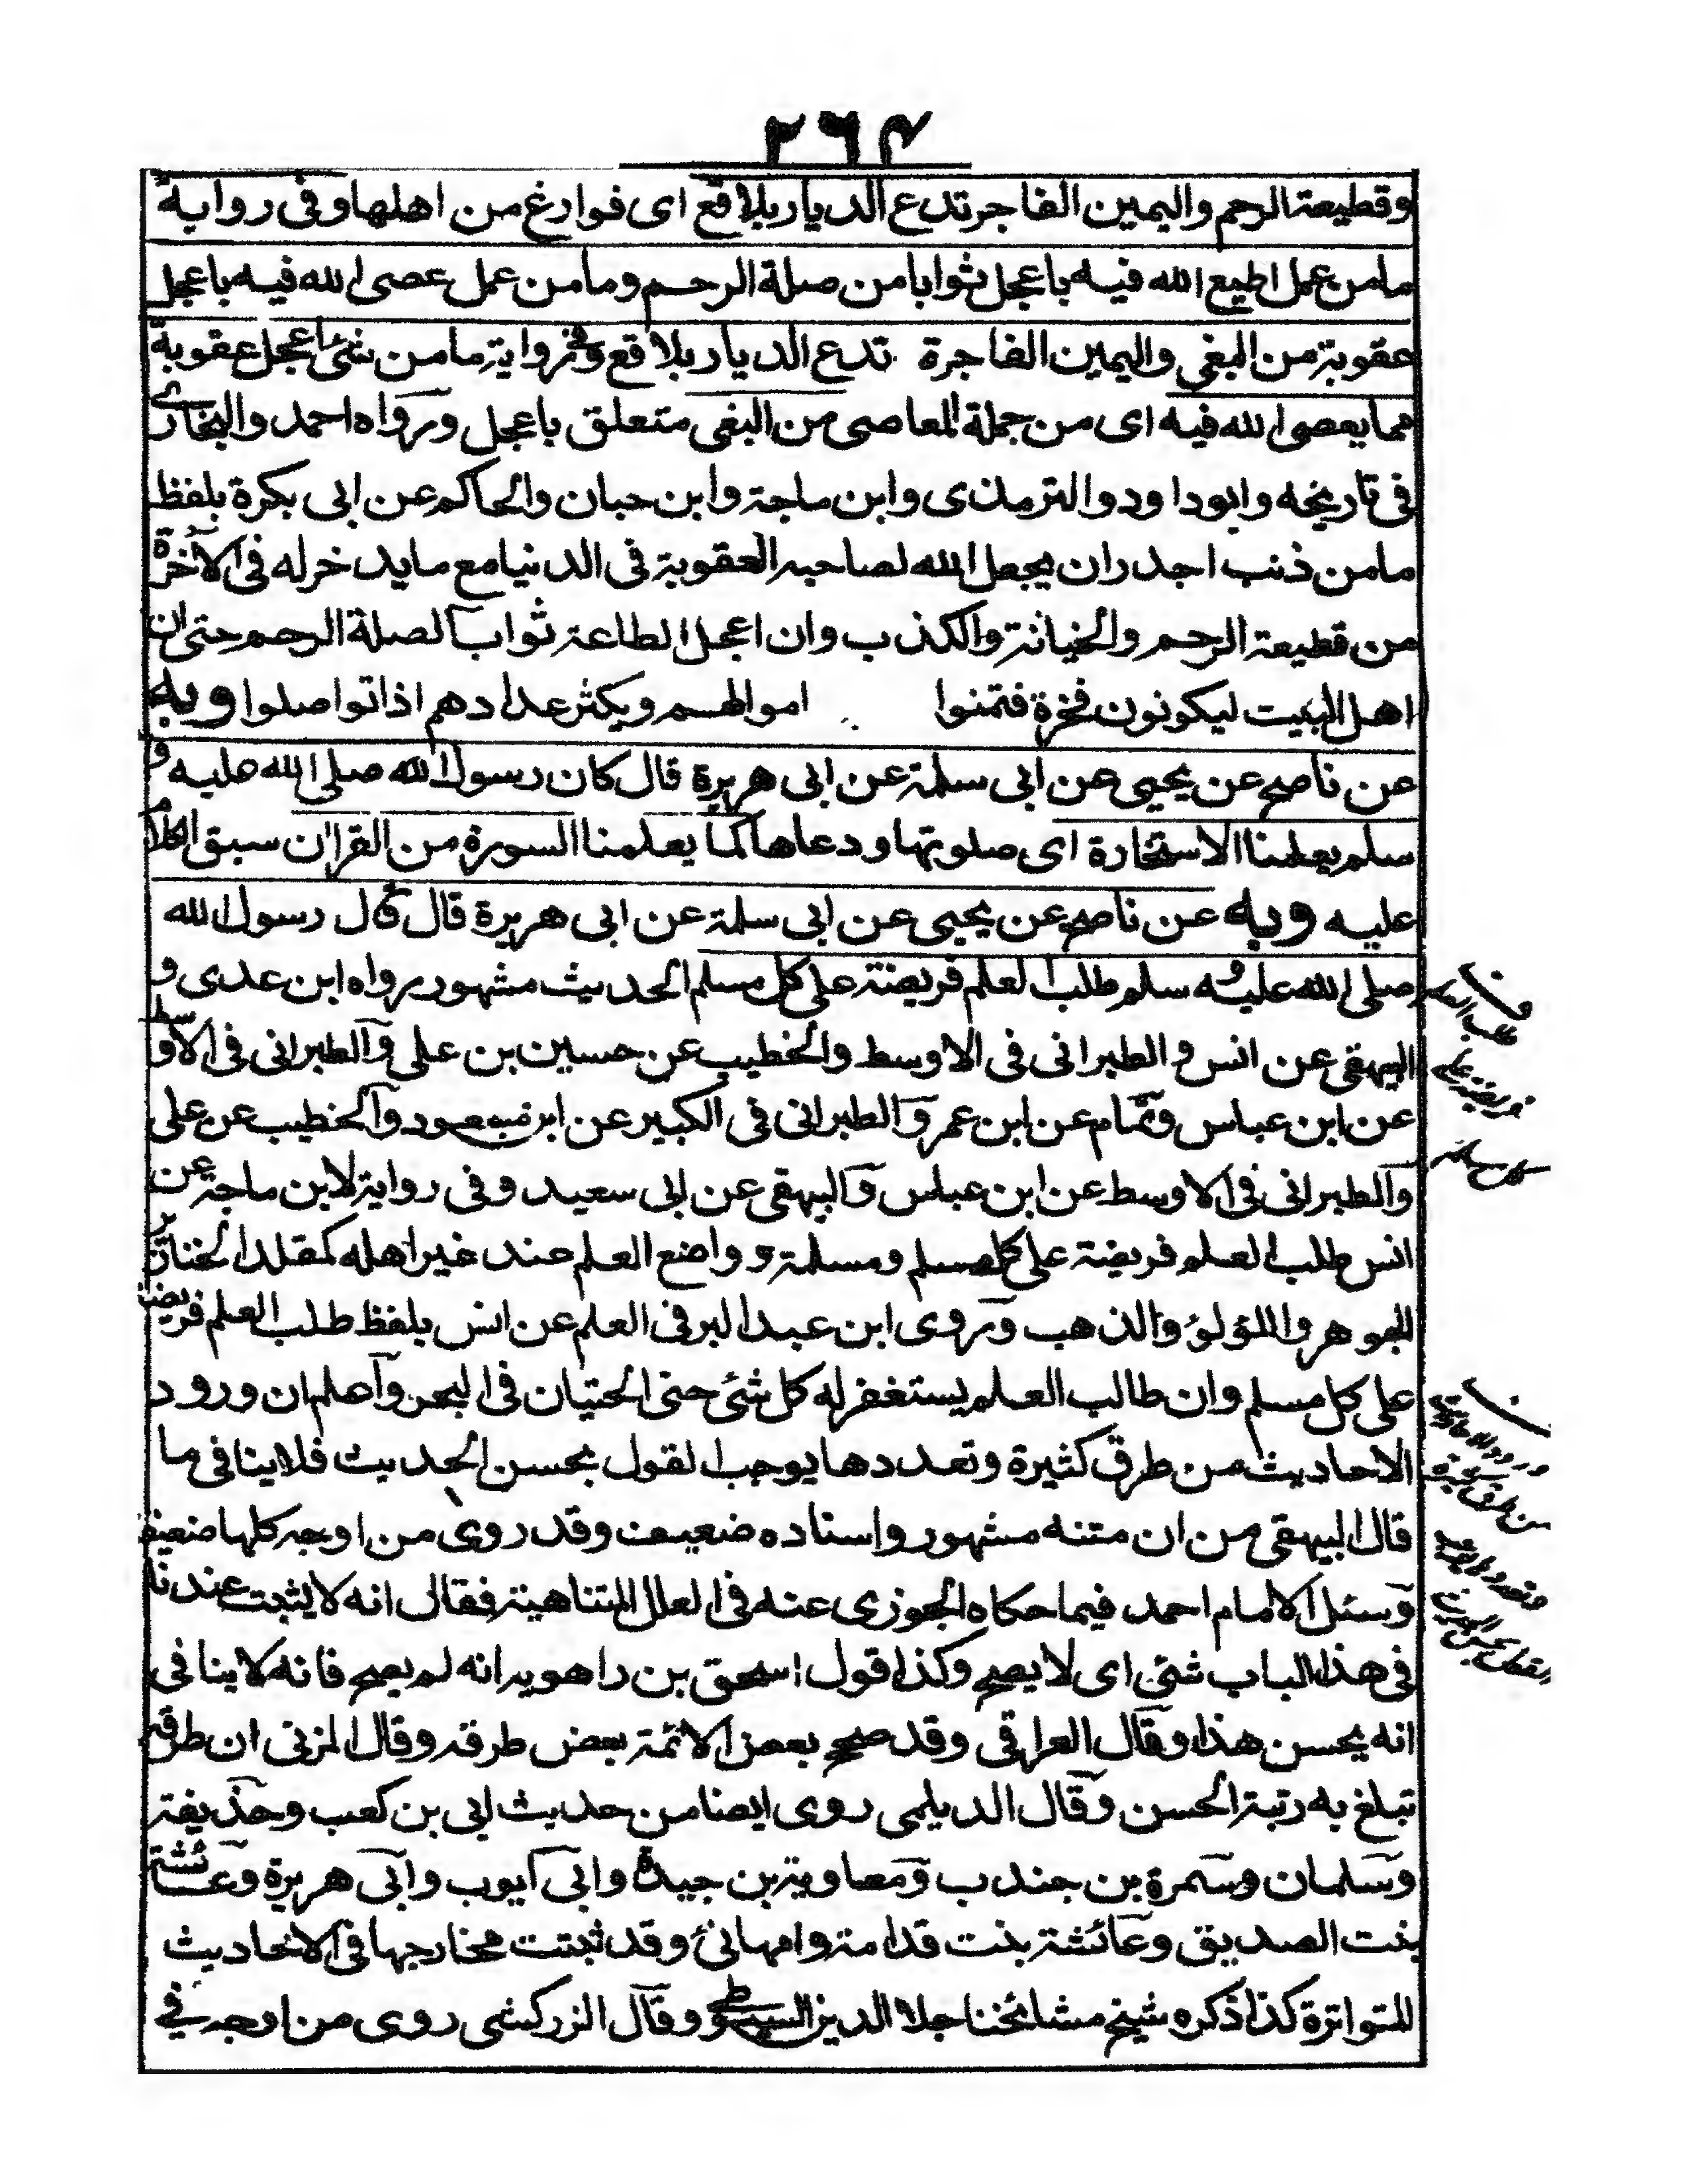 ٢٦٤
وقطيعة الرحم واليمين الفاجر تدع الديار بلاقع اى فوارغ من اهلها وفى رواية
مامن عمل اطيع الله فيه باعجل ثوابا من صلة الرحم ومامن عمل عصى الله فيه باعجل
عقوبة من البغى واليمين الفاجرة تدع الديار بلاقع وفى رواية مامن شئ اعجل عقوبة
مما يعصى الله فيه اى من جملة المعاصى من البغى متعلق باعجل ورواه احمد والبخارى
فى تاريخه وابوداود والترمذى وابن ماجة وابن حبان والحاكم عن ابى بكرة بلفظ
مامن ذنب اجدران يعجل الله لصاحبه العقوبة فى الدنيا مع مايدخرله فى الآخرة
من قطيعة الرحم والخيانة والكذب وان اعجل الطاعة ثوابا لصلة الرحم حتى ان
اهل البيت ليكونون فخرة فتمنوا اموالهم ويكثر عدادهم اذا تواصلوا وبه
عن ناصح عن يحيى عن ابى سلمة عن ابى هريرة قال كان رسول الله صلى الله عليه و
سلم يعلمنا الاستخارة اى صلوتها ودعاها كما يعلمنا السورة من القران سبق الكلام
عليه وبه عن ناصح عن يحيى عن ابى سلمة عن ابى هريرة قال قال رسول الله
صلى الله عليه وسلم طلب العلم فريضة على كل مسلم الحديث مشهور رواه ابن عدى و
البيهقى عن انس والطبرانى فى الاوسط والخطيب عن حسين بن على والطبرانى فى الاوسط
عن ابن عباس وتمام عن ابن عمر والطبرانى فى الكبير عن ابن مسعود والخطيب عن على
والطبرانى فى الاوسط عن ابن عباس والبيهقى عن ابى سعيد وفى رواية لابن ماجة عن
انس طلب العلم فريضة على كل مسلم ومسلمة و واضع العلم عند غير اهله كمقلد الخنازير
الجوهر واللؤلؤ والذهب وروى ابن عبد البر فى العلم عن انس بلفظ طلب العلم فريضة
على كل مسلم وان طالب العلم يستغفر له كل شئ حتى الحتيان فى البحر واعلم ان ورود
الاحاديث من طرق كثيرة وتعددها يوجب القول بحسن الحديث فلا ينافى ما
قال البيهقى من ان متنه مشهور واسناده ضعيف وقد روى من اوجه كلها ضعيفة
وسئل الامام احمد فيما حكاه الجوزى عنه فى العلل المتناهية فقال انه لا يثبت عندنا
فى هذا الباب شئ اى لا يصح وكذا قول اسحق بن راهويه انه لم يصح فانه لا ينافى
انه يحسن هذا وقال العراقى وقد صحح بعض الائمة بعض طرقه وقال المزنى ان طرقه
تبلغ به رتبة الحسن وقال الديلمى روى ايضا من حديث ابى بن كعب وحذيفة
وسلمان وسمرة بن جندب ومعاوية بن جيدة وابى ايوب وابى هريرة وعائشة
بنت الصديق وعائشة بنت قدامة وام هانئ وقد ثبتت مخارجها فى الاحاديث
المتواترة كذا ذكره شيخ مشائخنا جلال الدين السيوطى وقال الزركشى روى من اوجه فى
ف
طلب العلم
فريضة على
كل مسلم
ف
ورود الاحاديث
من طرق كثيرة
وتعددها يوجب
القول بحسن الحديث